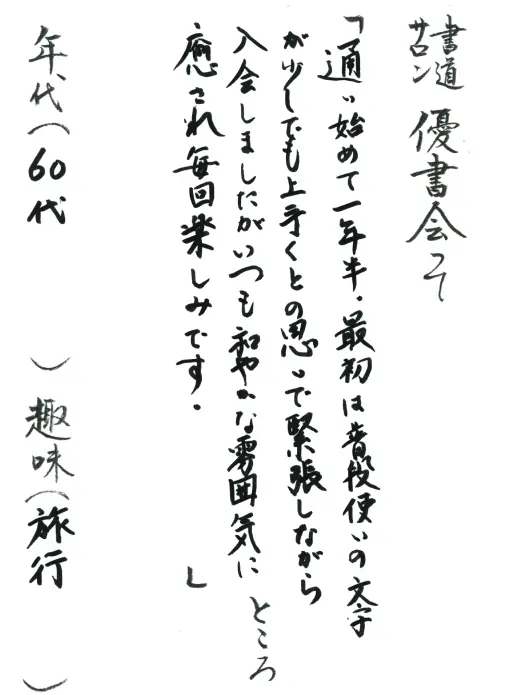 書道サロン 優書会って
「通い始めて一年半。最初は普段使いの文字
が少しでも上手くとの思いで緊張しながら
入会しましたがいつも和やかな雰囲気に
癒され毎回楽しみです。」
ところ
年代(60代)趣味(旅行)